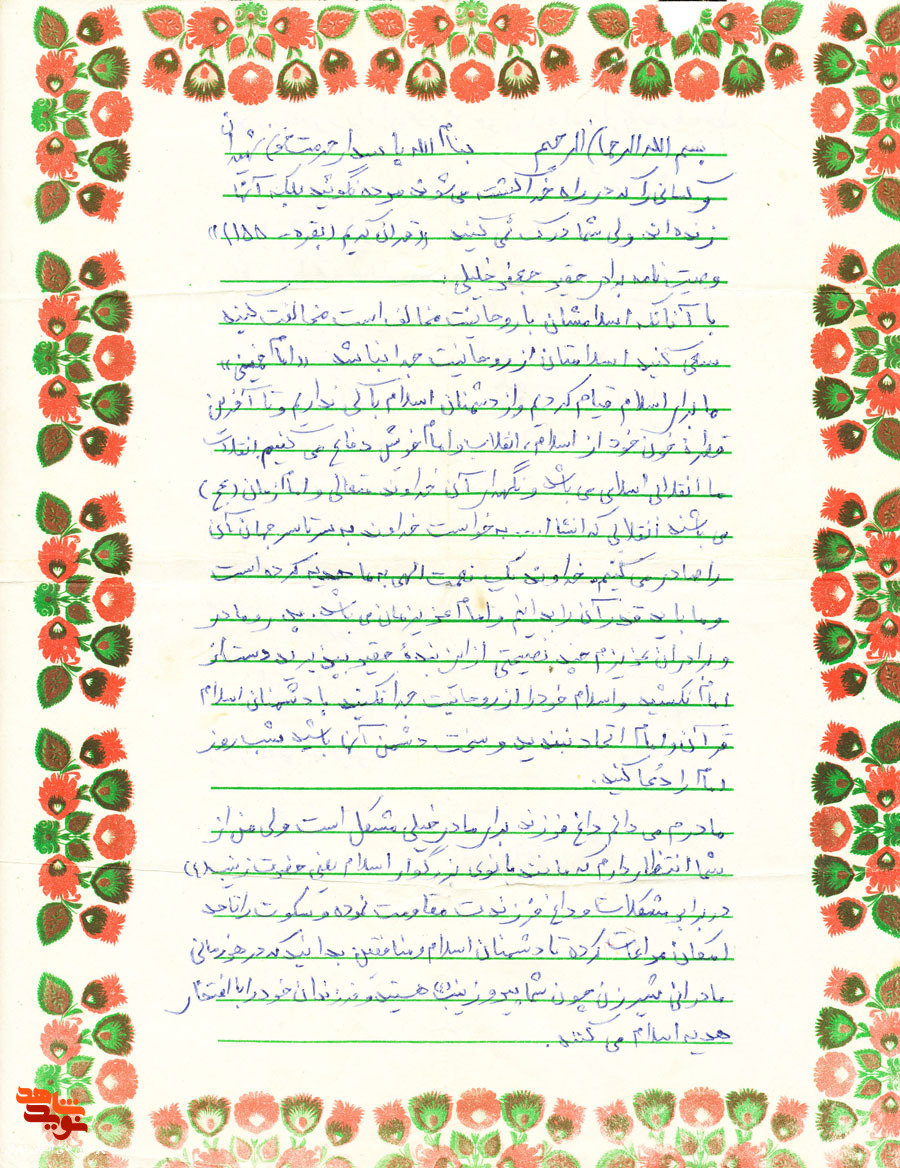 بسم الله الرحمان الرحیم بنام الله پاسدار حرمت خون شهیدان
و کسانی را که در راه خدا کشته می شوند مرده نگوئید بلکه آنها
زنده اند ولی شما درک نمی کنید «(قرآن کریم (بقره - ۱۵۸)»
وصیت نامه برادر حقیر جعفر خلیلی :
با آنانکه اسلامشان با روحانیت مخالف است مخالفت کنید
سعی کنید اسلامتان از روحانیت جدا نباشد «(امام خمینی)»
ما برای اسلام قیام کردیم و از دشمنان اسلام باکی نداریم و تا آخرین
قطره خون خود از اسلام، انقلاب و امام خویش دفاع می کنیم انقلاب
ما انقلابی اسلامی می باشد و نگهدار آن خداوند متعالی و امام زمان (عج)
می باشند انقلابی که انشاا... به خواست خداوند به سرتاسر جهان آن
را صادر می کنیم. خداوند یک نعمت الهی به ما هدیه کرده است
و ما باید قدر آن را بدانیم و امام عزیزمان می باشد. پدر و مادر
و برادران عزیزم چند نصیحتی از این بندهٔ حقیر بپذیرید دست از
امام نکشید و اسلام خود را از روحانیت جدا نکنید با دشمنان اسلام
قرآن و امام اتحاد نبندید و سخت دشمن آنها باشید شب و روز
امام را دعا کنید.
مادرم می دانم داغ فرزند برای مادر خیلی مشکل است ولی من از
شما انتظار دارم که مانند بانوی بزرگوار اسلام یعنی حضرت زینب (س)
در برابر مشکلات و داغ فرزندت مقاومت نموده و سکوت را تا حد
امکان مراعات کرده تا دشمنان اسلام و منافقین بدانید که در هر زمانی
مادرانی شیر زن چون شما پیرو زینب هستید و فرزندان خود را با افتخار
هدیه اسلام می کنند.
نوید شاهد